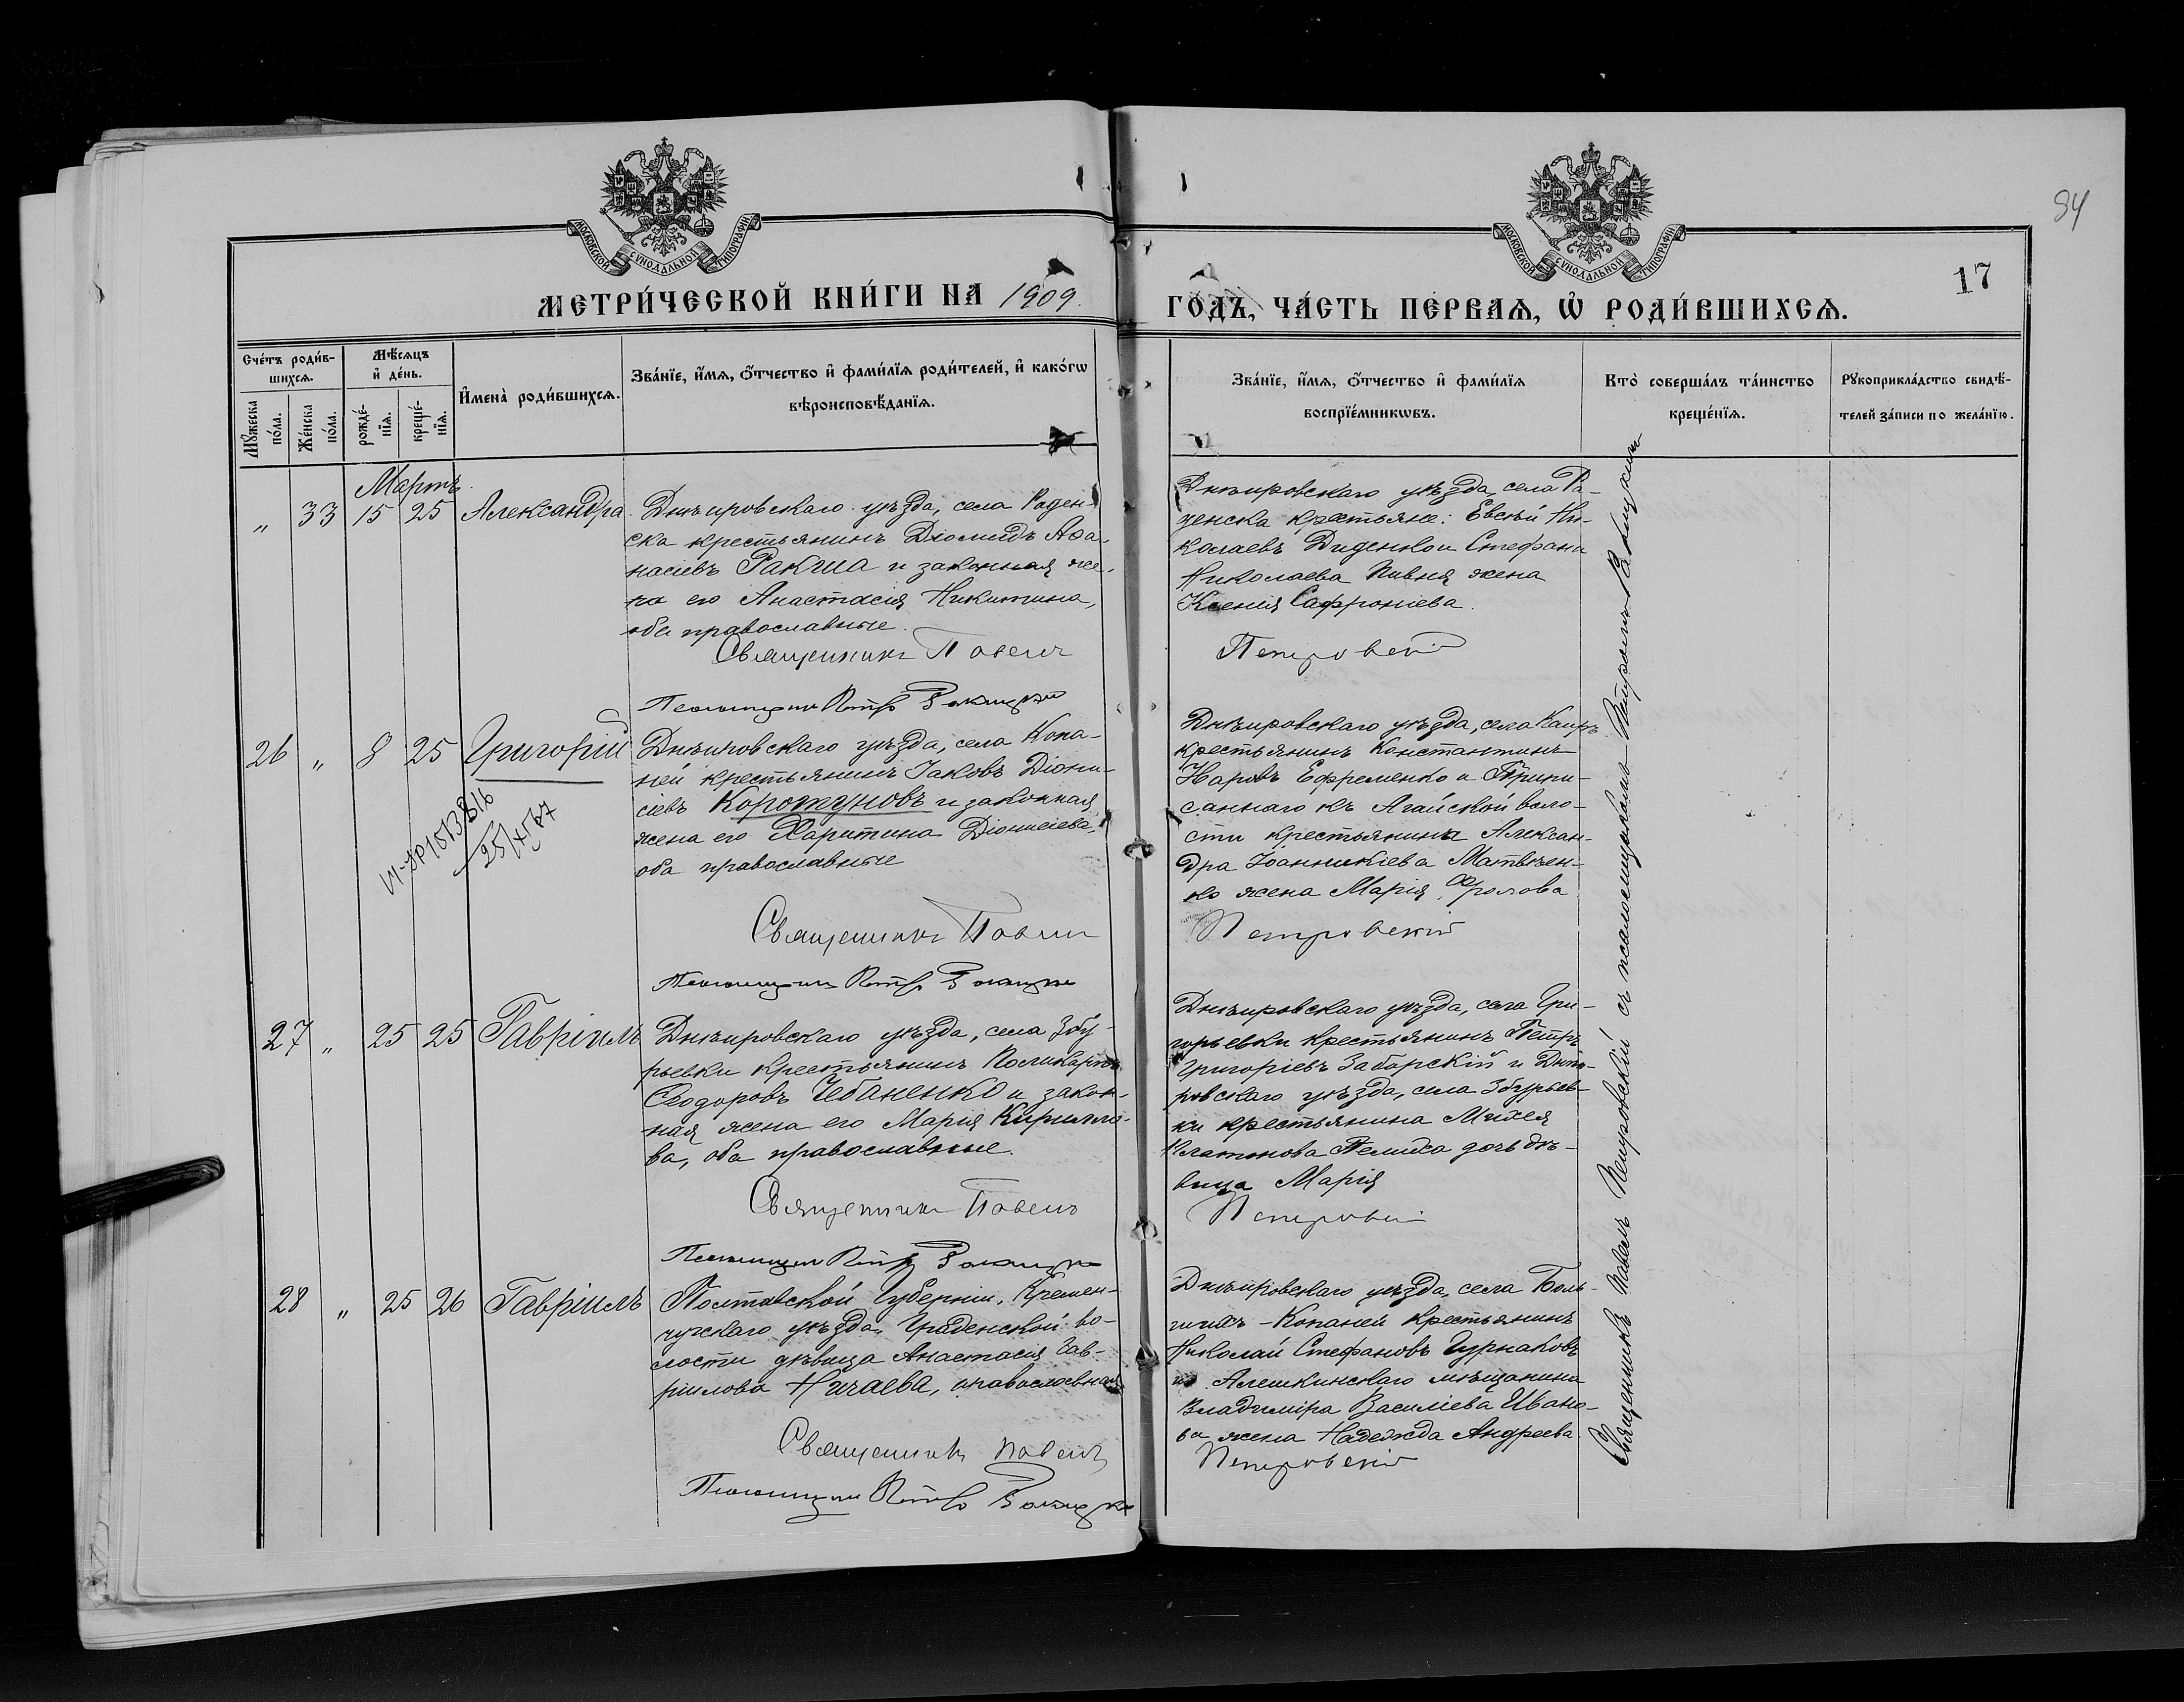 84
17
МОСКОВСКОЙ СѴНОДАЛЬНОЙ ТИПОГРАФІИ
МОСКОВСКОЙ СѴНОДАЛЬНОЙ ТИПОГРАФІИ
МЕТРИ́ЧЕСКОЙ КНИ́ГИ НА 1909. ГО́ДЪ, ЧА́СТЬ ПЕ́РВАѦ, Ѡ҆ РОДИ́ВШИХСѦ.
Сче́тъ роди́в-
шихсѧ.
Мꙋжеска по́ла.
Же́нска по́ла.
Мѣ́сѧцъ
и҆ де́нь.
рожде́-
нїѧ.
креще́-
нїѧ.
И҆мена̀ роди́вшихсѧ.
Зва́нїе, и҆́мѧ, ѻ҆́тчество и҆ фами́лїѧ роди́телей, и҆ како́гѡ
вѣроисповѣ́данїѧ.
Зва́нїе, и҆́мѧ, ѻ҆́тчество и҆ фами́лїѧ
воспрїе́мникѡвъ.
Кто̀ соверша́лъ та́инство
креще́нїѧ.
Рꙋкоприкла́дство свидѣ́-
телей за́писи по жела́нїю.
Мартъ
„ 33 15 25 Александра.
Днѣпровскаго уѣзда, села Раден-
ска крестьянинъ Діомидъ Аѳа-
насіевъ Ракша и законная же-
на его Анастасія Никитина,
оба православные.
Священникъ Павелъ Петровскій
Псаломщикъ Петръ
Днѣпровскаго уѣзда, села Ра-
денска крестьяне: Евсѣй Ни-
колаевъ Диденко и Стефана
Николаева Пивня жена
Ксенія Сафроніева.
26 „ 8 25 Григорій
Днѣпровскаго уѣзда, села Копа-
ней крестьянинъ Іаковъ Діони-
сіевъ Коротуновъ и законная
жена его Харитина Діонисіева,
оба православные
Священникъ Павелъ Петровскій
Псаломщикъ Петръ
25/4/87
Днѣпровскаго уѣзда, села Каиръ
крестьянинъ Константинъ
Ефременко и Припи-
саннаго къ Агайской воло-
сти крестьянина Алексан-
дра Іоанникіева Матвѣен-
ко жена Марія Фролова
27 „ 25 25 Гавріилъ
Днѣпровскаго уѣзда, села Збу-
рьевки крестьянинъ Поликарпъ
Ѳеодоровъ Чебаненко и закон-
ная жена его Марія Кирилло-
ва, оба православные.
Священникъ Павелъ Петровскій
Псаломщикъ Петръ
Днѣпровскаго уѣзда, села Гри-
горьевки крестьянинъ Петръ
Григоріевъ Забарскій и Днѣп-
ровскаго уѣзда, села Збурьев-
ки крестьянина Михея
Платонова дочь дѣ-
вица Марія
28 „ 25 26 Гавріилъ
Полтавской губерніи, Кремен-
чугскаго уѣзда, Граденской во-
лости дѣвица Анастасія Гав-
ріилова Ничаева, православная
Священникъ Павелъ Петровскій
Псаломщикъ Петръ
Днѣпровскаго уѣзда, села Боль-
шихъ-Копаней крестьянинъ
Николай Стефановъ Гурнаковъ
и Алешкинскаго мѣщанина
Владиміра Василіева Ивано-
ва жена Надежда Андреева
Священникъ Павелъ Петровскій съ псаломщикомъ Петромъ